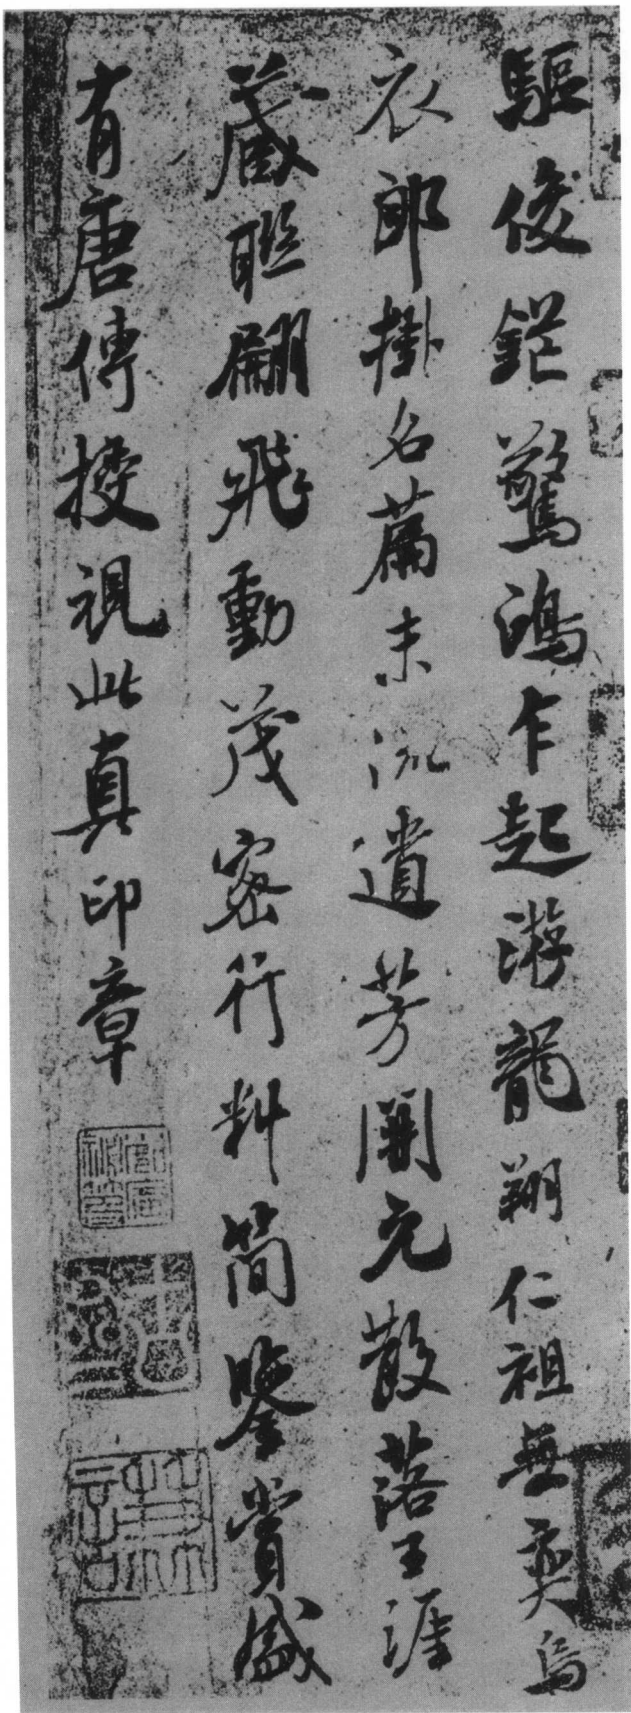 驅俊鋩驚鴻乍起游龍翔仁祖無奕烏
衣郎掛名篇末流遺芳開元散落王涯
藏聯翩飛動茂密行料簡鑒賞盛
有唐傳授視此真印章